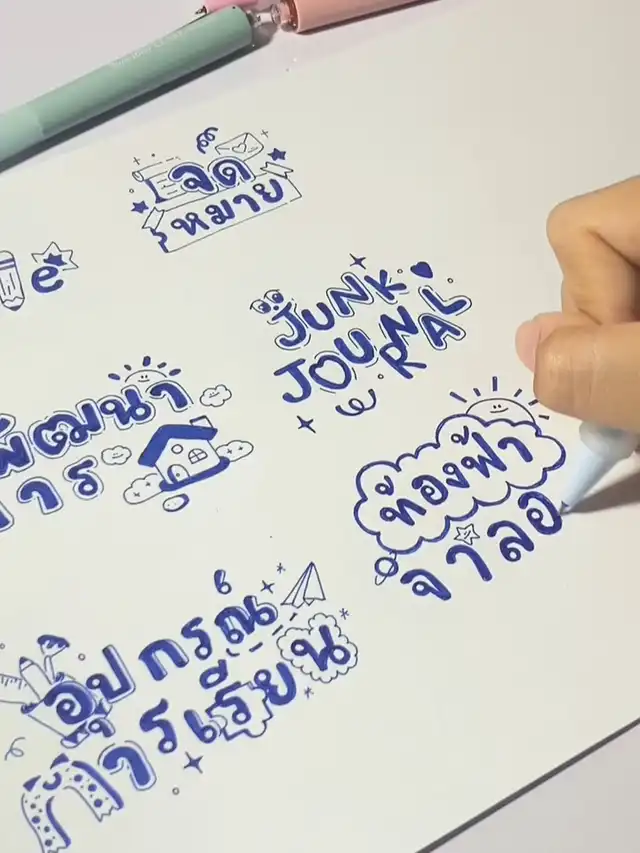 จด
หมาย
e
JUNK
JOURNAL
พัฒนา
าร
ท้องฟ้า
จาลอ
อุปกรณ์
การเรียน